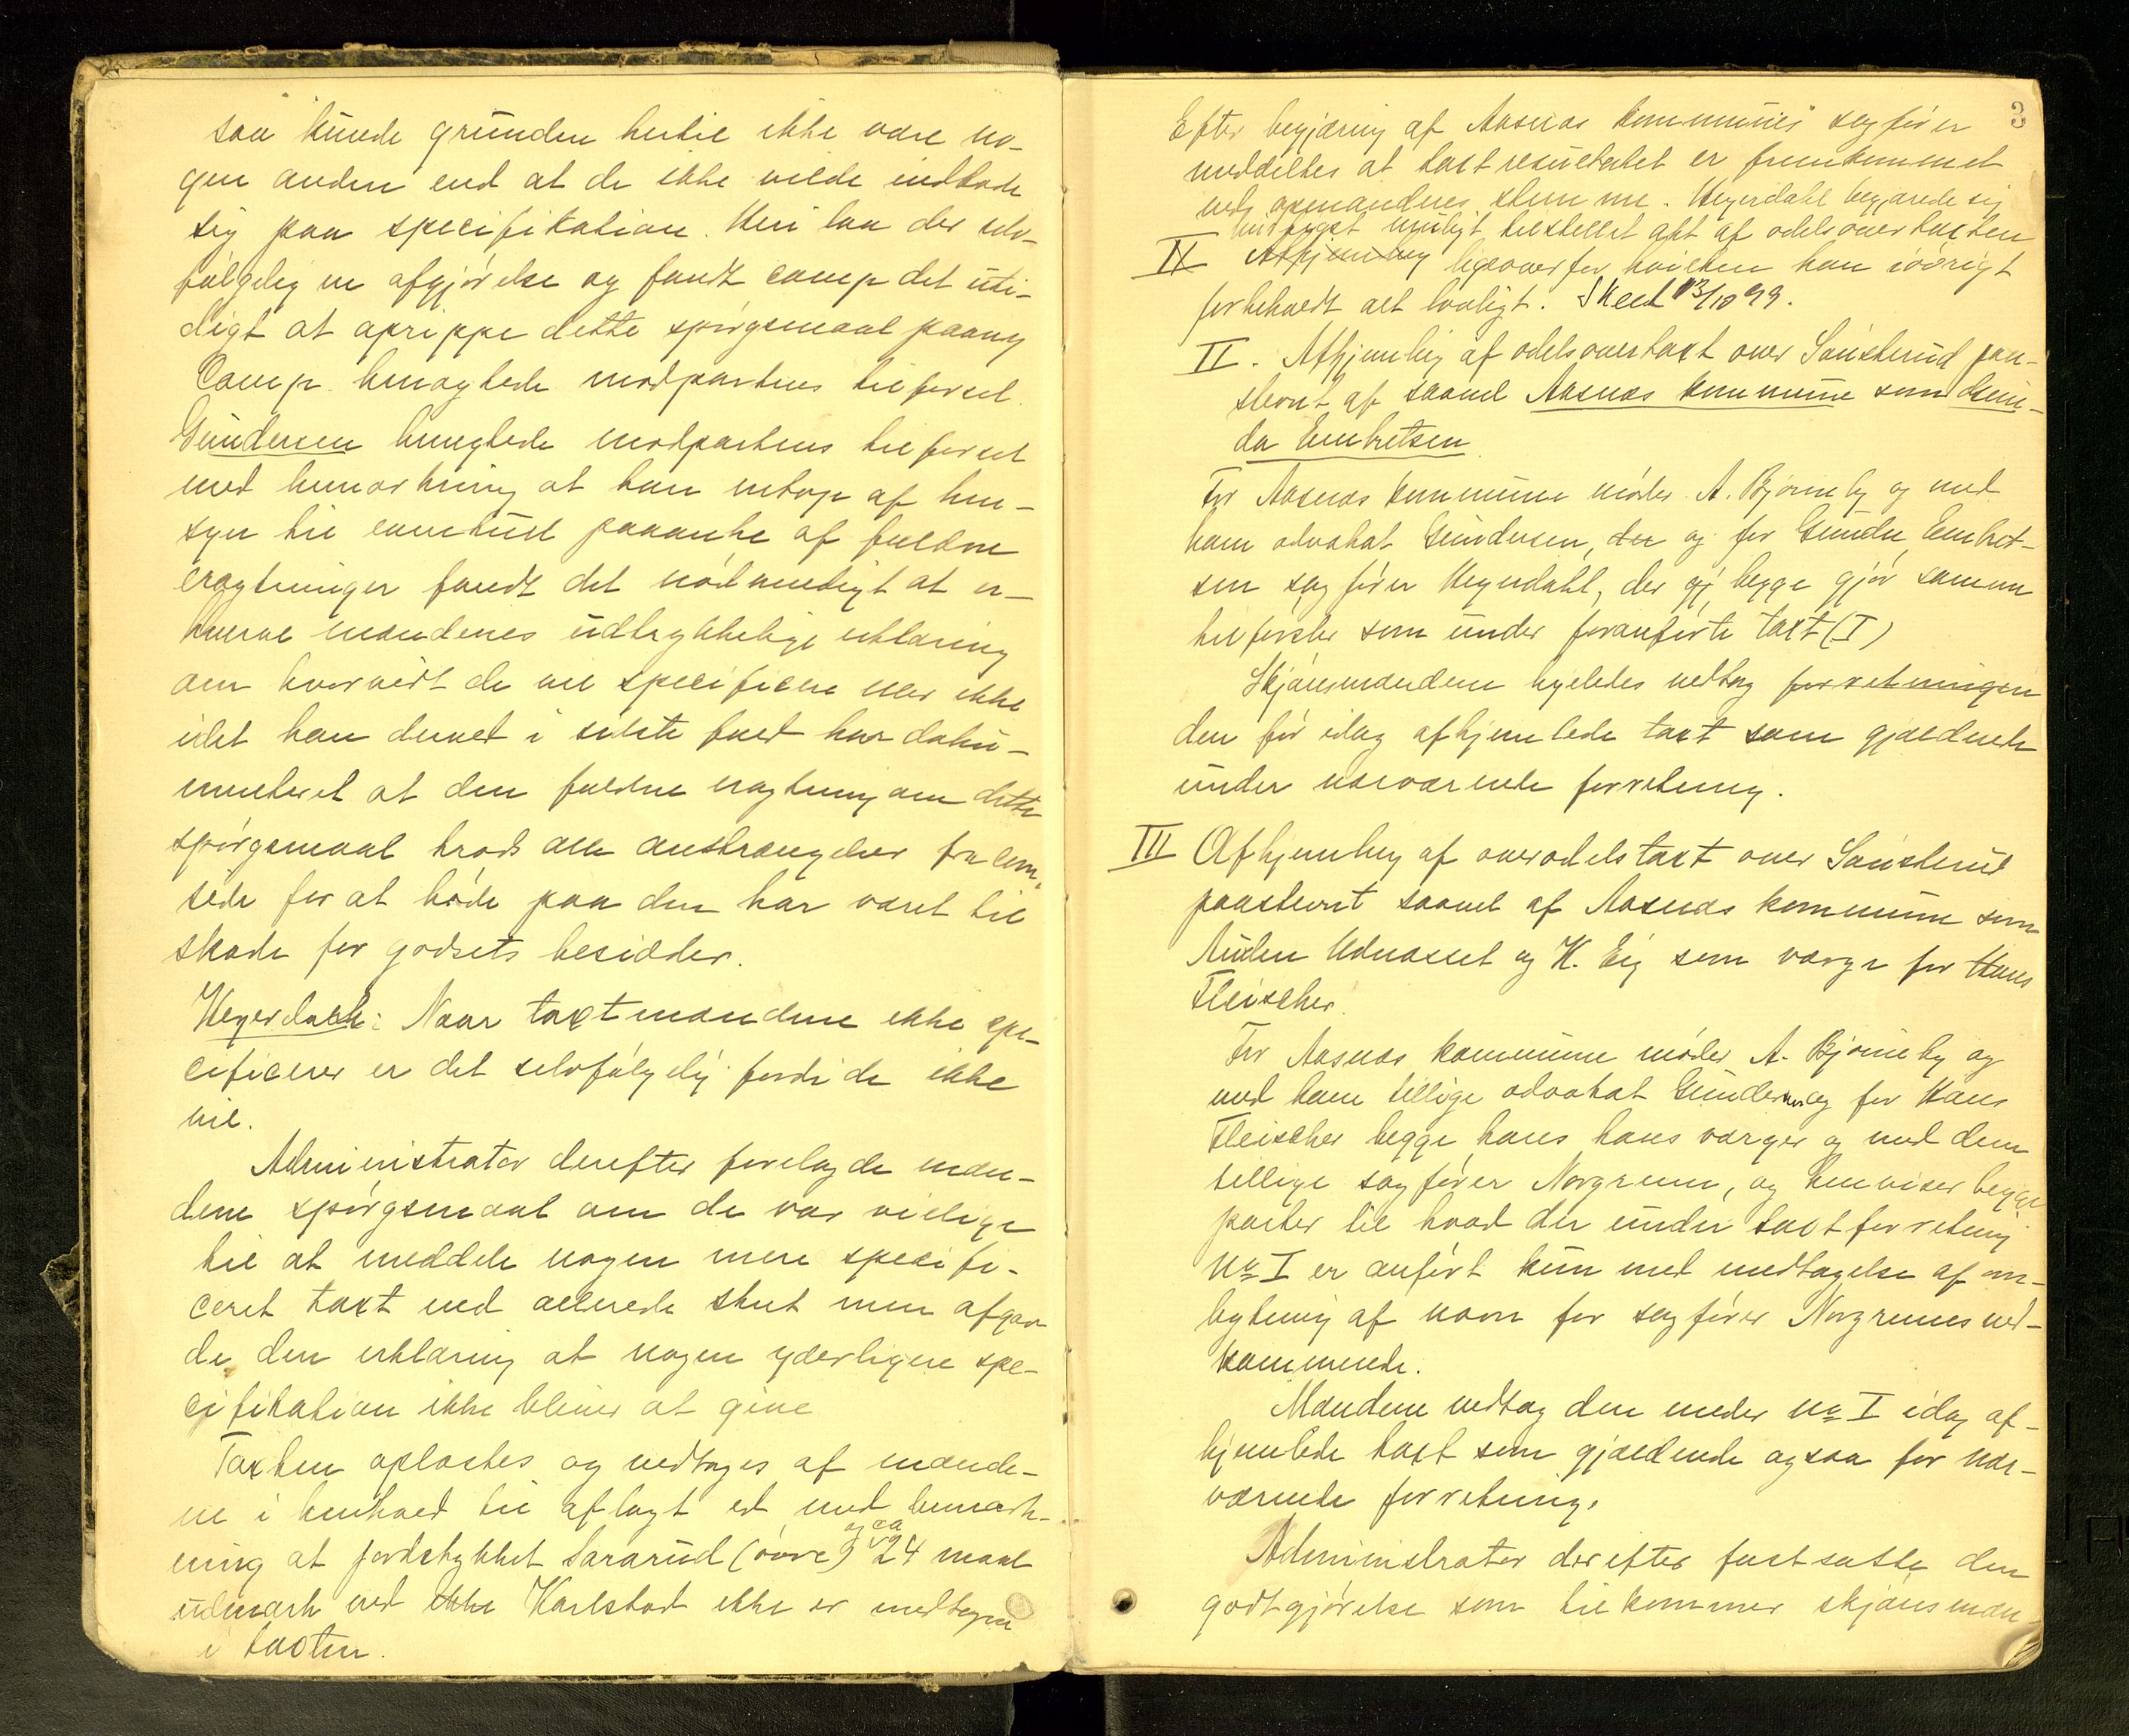 saa kunde grunden hertil ikke være no-
gen anden end at de ikke vilde indlade
sig paa specifikation. Heri laa der selv-
følgelig en afgjørelse og fandt Comp det uti-
digt at oprippe dette spørgsmaal paany
Comp. benægtede modpartens tilførsel.
Gundersen benegtede modpartens tilførsel
med bemærkning at han netop af hen-
syn til eventuel paaanke af faldne
eragtninger fandt det nødvendigt at er-
hverve mændenes udtrykkelige erklæring
om hvorvidt de vil specificere eller ikke
idet han derved i sidste fald har doku-
menteret at den faldne eragtning om dette
spørgsmaal trods alle anstrængelser fra Com.
side for at bøde paa den har været til
skade for godsets besidder.
Heyerdahl: Naar taxtmændene ikke spe-
cificerer er det selvfølgelig fordi de ikke
vil.
Administrator derefter forelagde mæn-
dene spørgsmaal om de var villige
til at meddele nogen mere specifi-
ceret taxt end allerede skeet men afgav
de den erklæring at nogen yderligere spe-
cifikation ikke bliver at give
Taxten oplæstes og vedtoges af mænde-
ne i henhold til aflagt ed med bemærk-
og ca
ning at jordstykket Sararud (øvre) 24 maal
udmark ved ikke Karlstad ikke er medtagne
i taxten.
3
Efter begjæring af Aasnæs kommunes sagfører
meddeltes at taxtresultatet er fremkommet
ved opmandens stemme. Heyerdahl begjærede sig
snarest muligt tilstillet akt af odelsovertaxten
II Afhjemling ligeoverfor hvilken han iøvrigt
forbeholdt alt lovligt. Skeet 13/10 99.
II. Afhjemling af odelsovertaxt over Sønsterud paa-
stevnt af saavel Aasnæs kommune som Gun-
da Embretsen.
For Aasnæs kommune møder A. Bjørneby og med
ham advokat Gundersen, der og for Gunda Embret-
sen sagfører Heyerdahl, der gj begge gjør samme
tilførsler som under foranførte taxt (I)
Skjønsmændene ligeledes vedtog forretningen
den før idag afhjemlede taxt som gjældende
under nærværende forretning.
III Afhjemling af overodelstaxt over Sønsterud
paastevnt saavel af Aasnæs kommune som
Auden Udnæsset og K. Eig som værge for Hans
Fleischer.
For Aasnæs kommune møder A. Bjørneby og
med ham tillige advokat Gundersen og for Hans
Fleischer begge hans hans værger og med dem
tillige sagfører Norgrenn, og henviser begge
parter til hvad der under taxtforretning
No I er anført kun med undtagelse af om-
bytning af navn for sagfører Norgrenns ved-
kommende.
Mændene vedtog den under No I idag af-
hjemlede taxt som gjældende ogsaa for nær-
værende forretning.
Administrator derefter fastsatte den
godtgjørelse som tilkommer skjønsmæn-